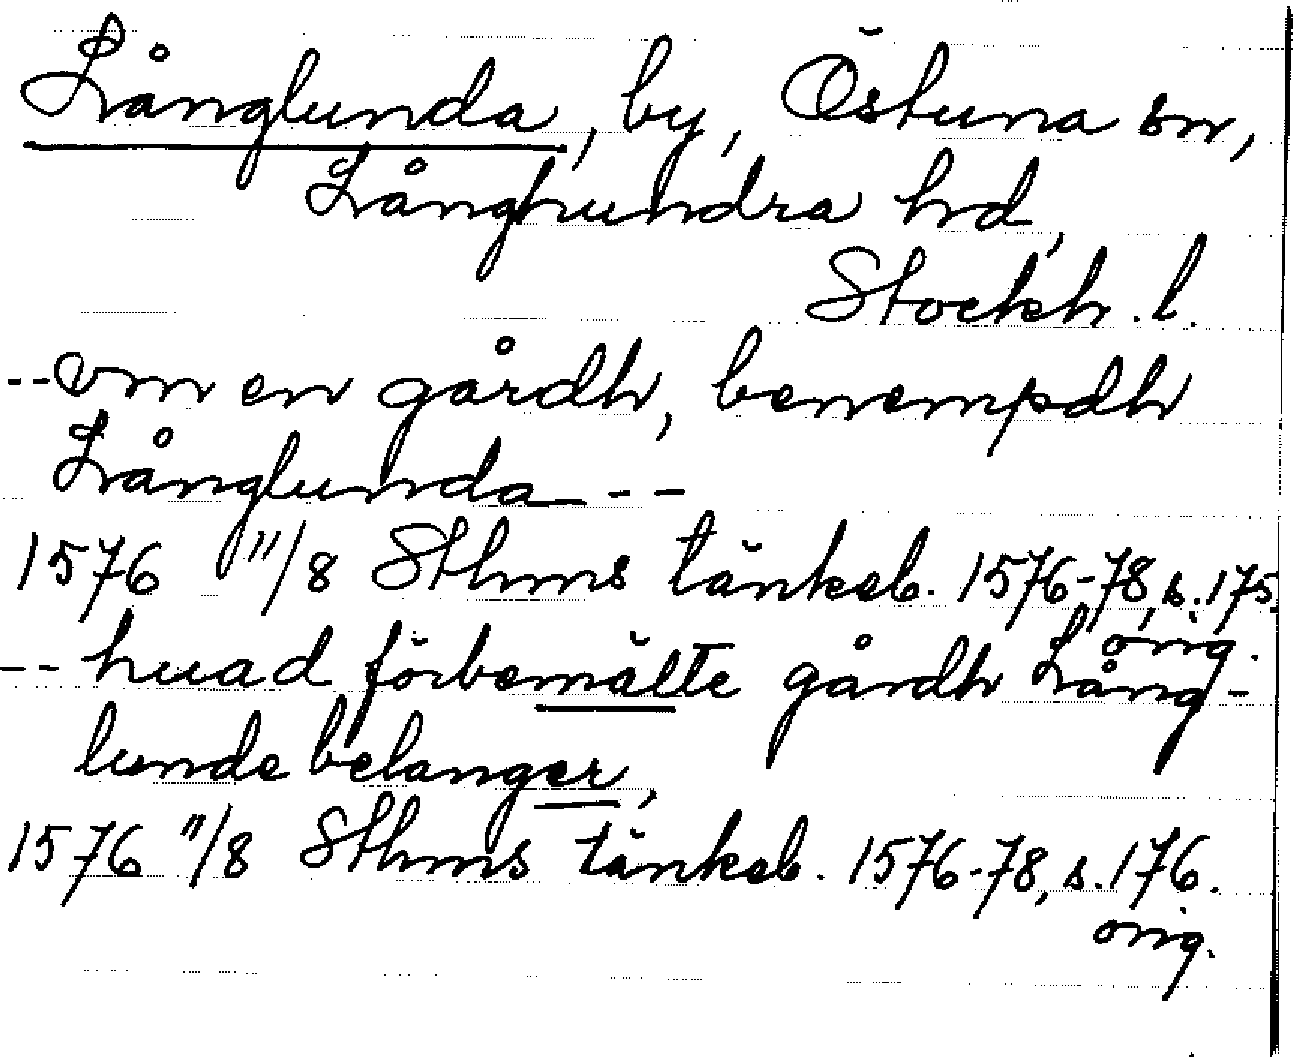 Långlunda, by, Östuna sn,
Långhundra hd,
Stockh. l.
--om en gårdh, benempdh
Långlunda---
1576 11/8 Sthms tänkeb. 1576-78, s. 175.
orig.
-- huad förbemälte gårdh Lång-
lunde belanger,
1576 11/8 Sthms tänkeb. 1576-78, s. 176.
orig.